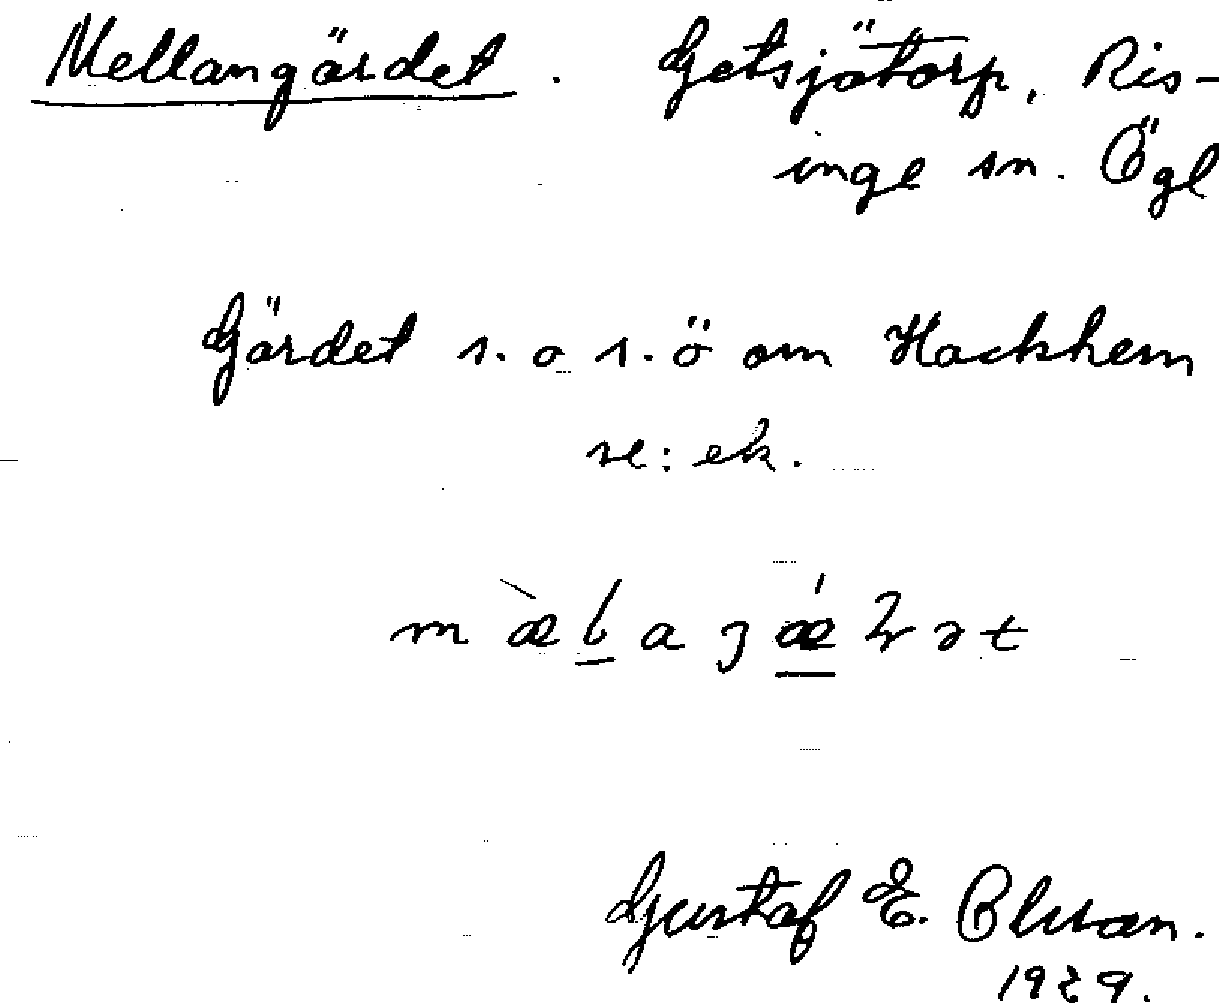 Mellangärdet. Getsjötorp, Ris-
inge sn. Ögl
Gärdet s. o s. ö om Hackhem
se: ek.
Gustaf E. Olsson.
1929.